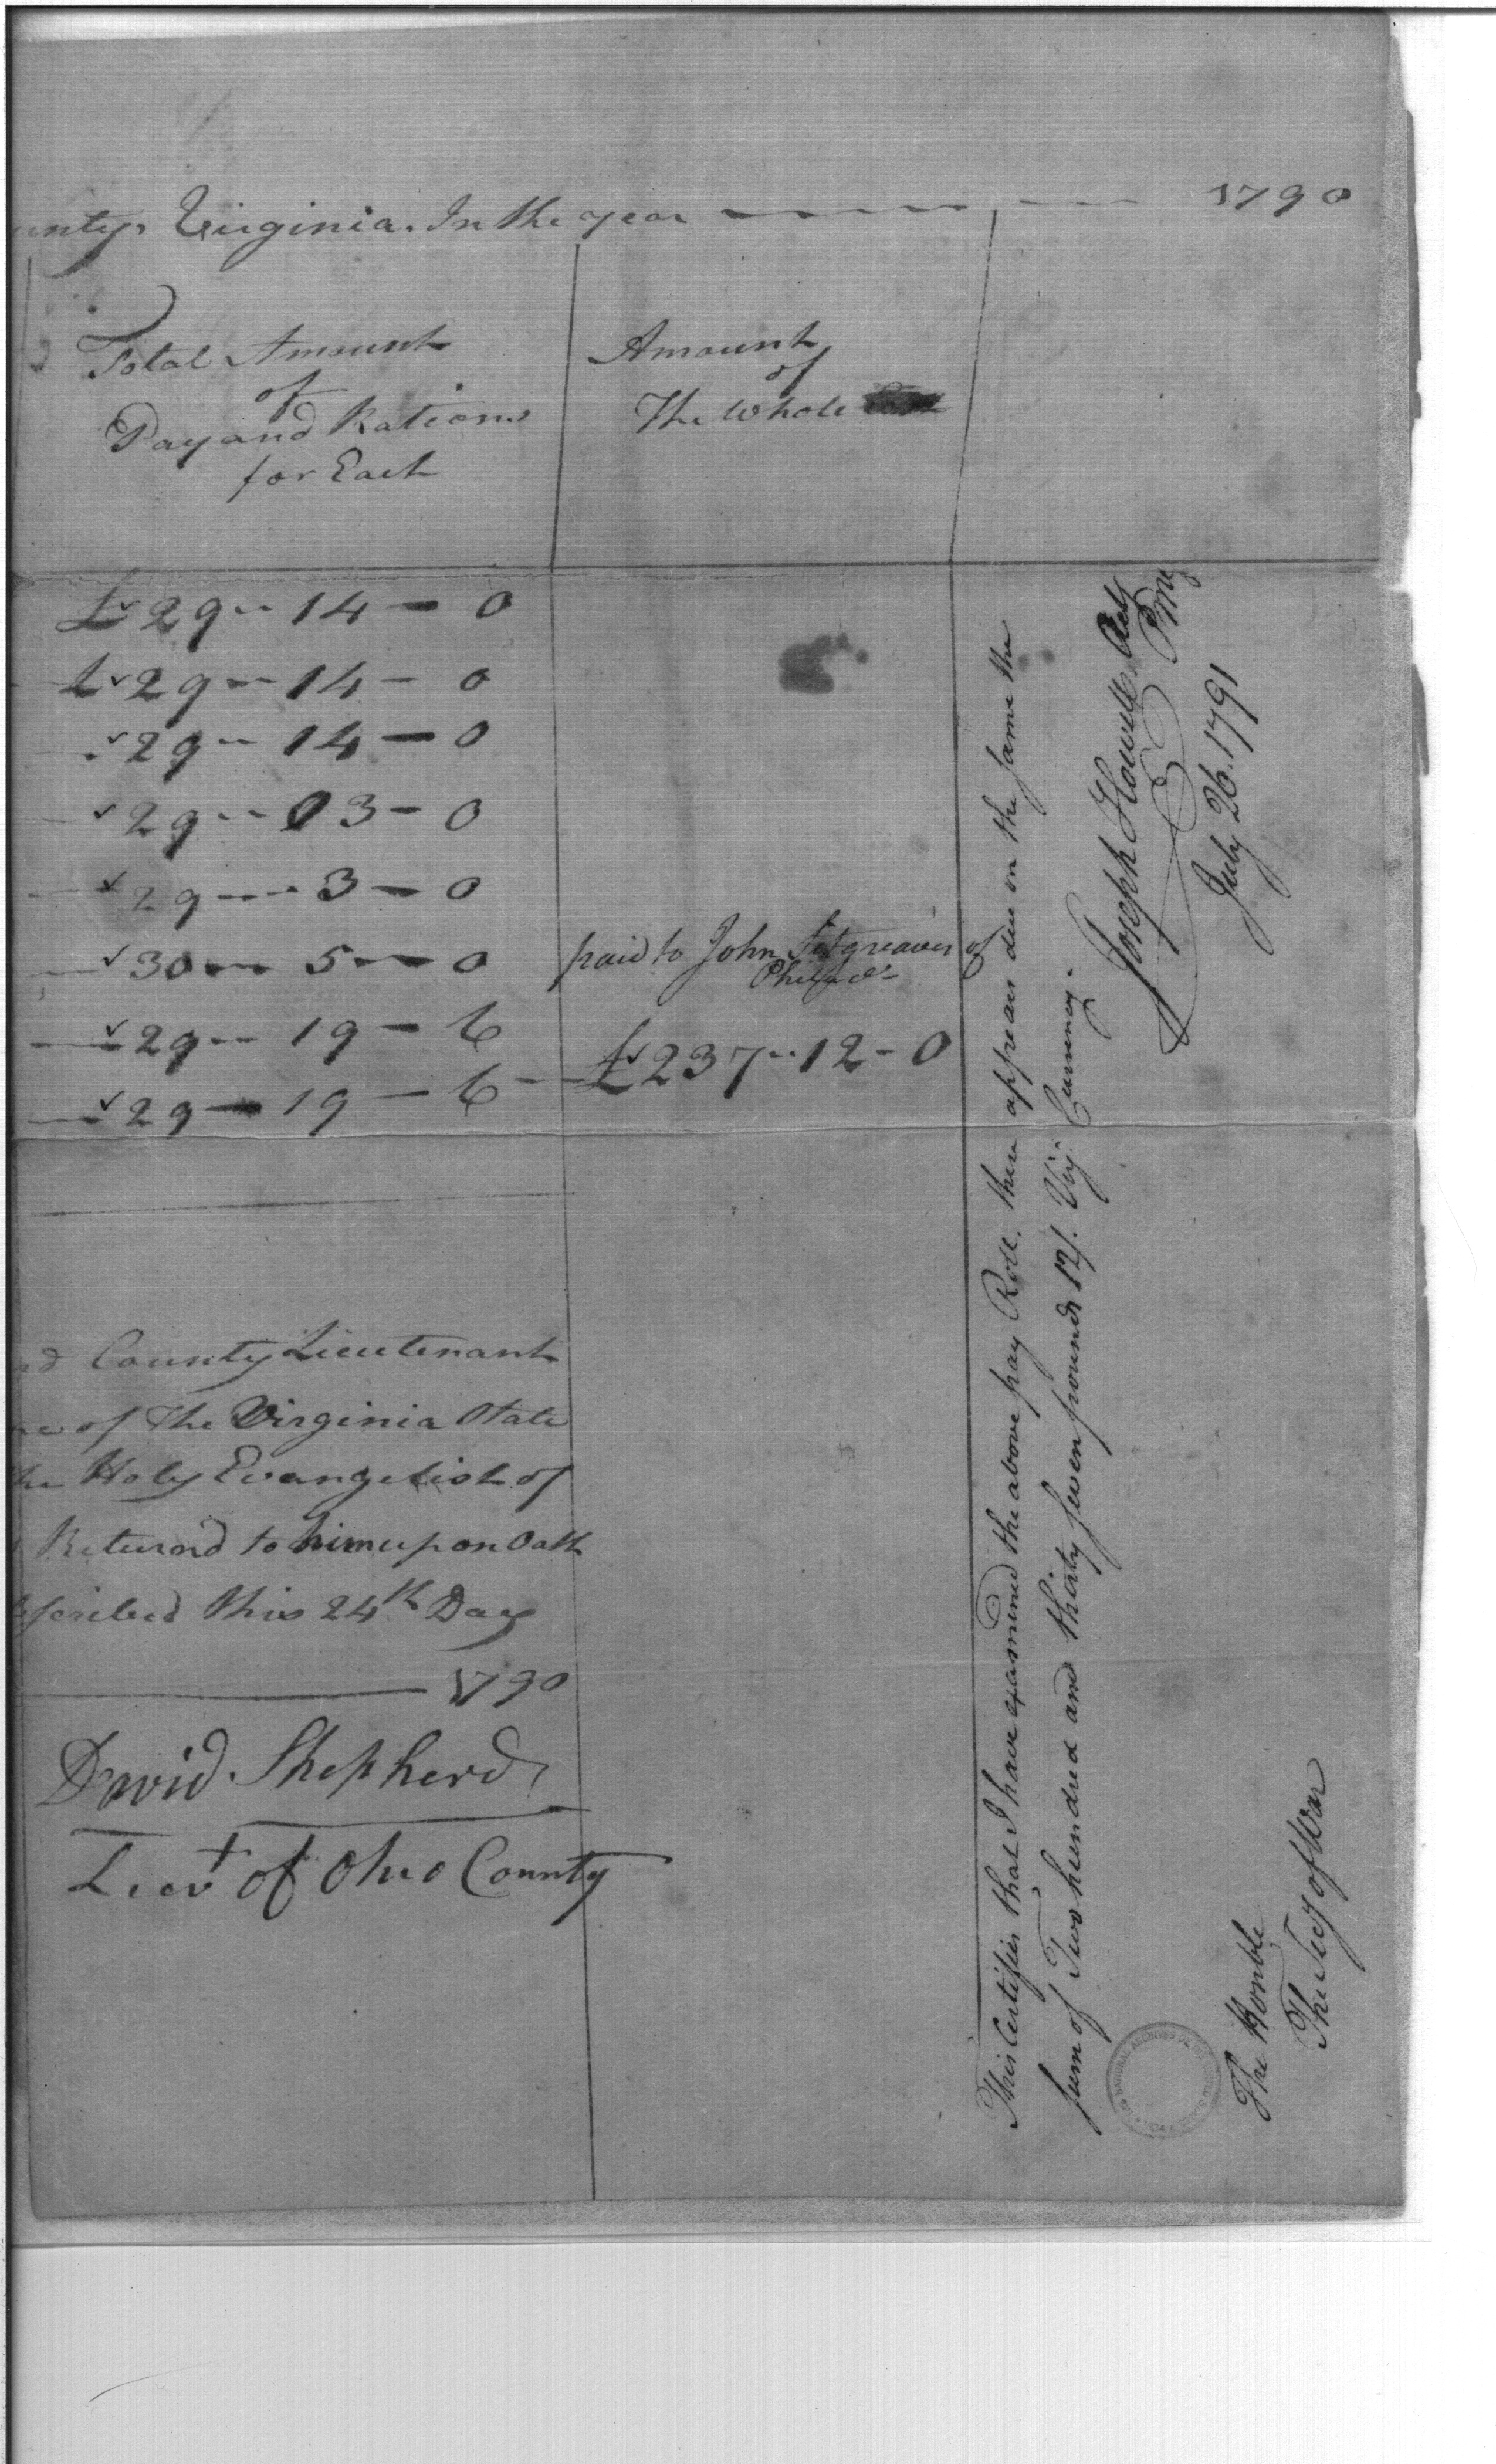 unty, Virginia. In the year 1790
Total Amount
of
Pay and Rations
for Each
Amount
of
The Whole
£29 - 14 - 0
£29 - 14 - 0
29 - 14 - 0
29 - 03 - 0
29 - 3 - 0
30 - 5 - 0
29 - 19 - 6
29 - 19 - 6
paid to John Sitgreaves of
Philad
£237 - 12 - 0
nd County Lieutenant
ne of The Virginia State
the Holy Evangelist of
Returnd to him upon Oath
bscribed this 24th Day
1790
David Shepherd
Lieut of Ohio County
This Certifies that I have examined the above pay Roll, there appears due on the same the
sum of Two hundred and thirty seven pounds 12/. Virg: Currency.
Joseph Howell Act
PMG
July 26. 1791
The Honble
The Secy of War